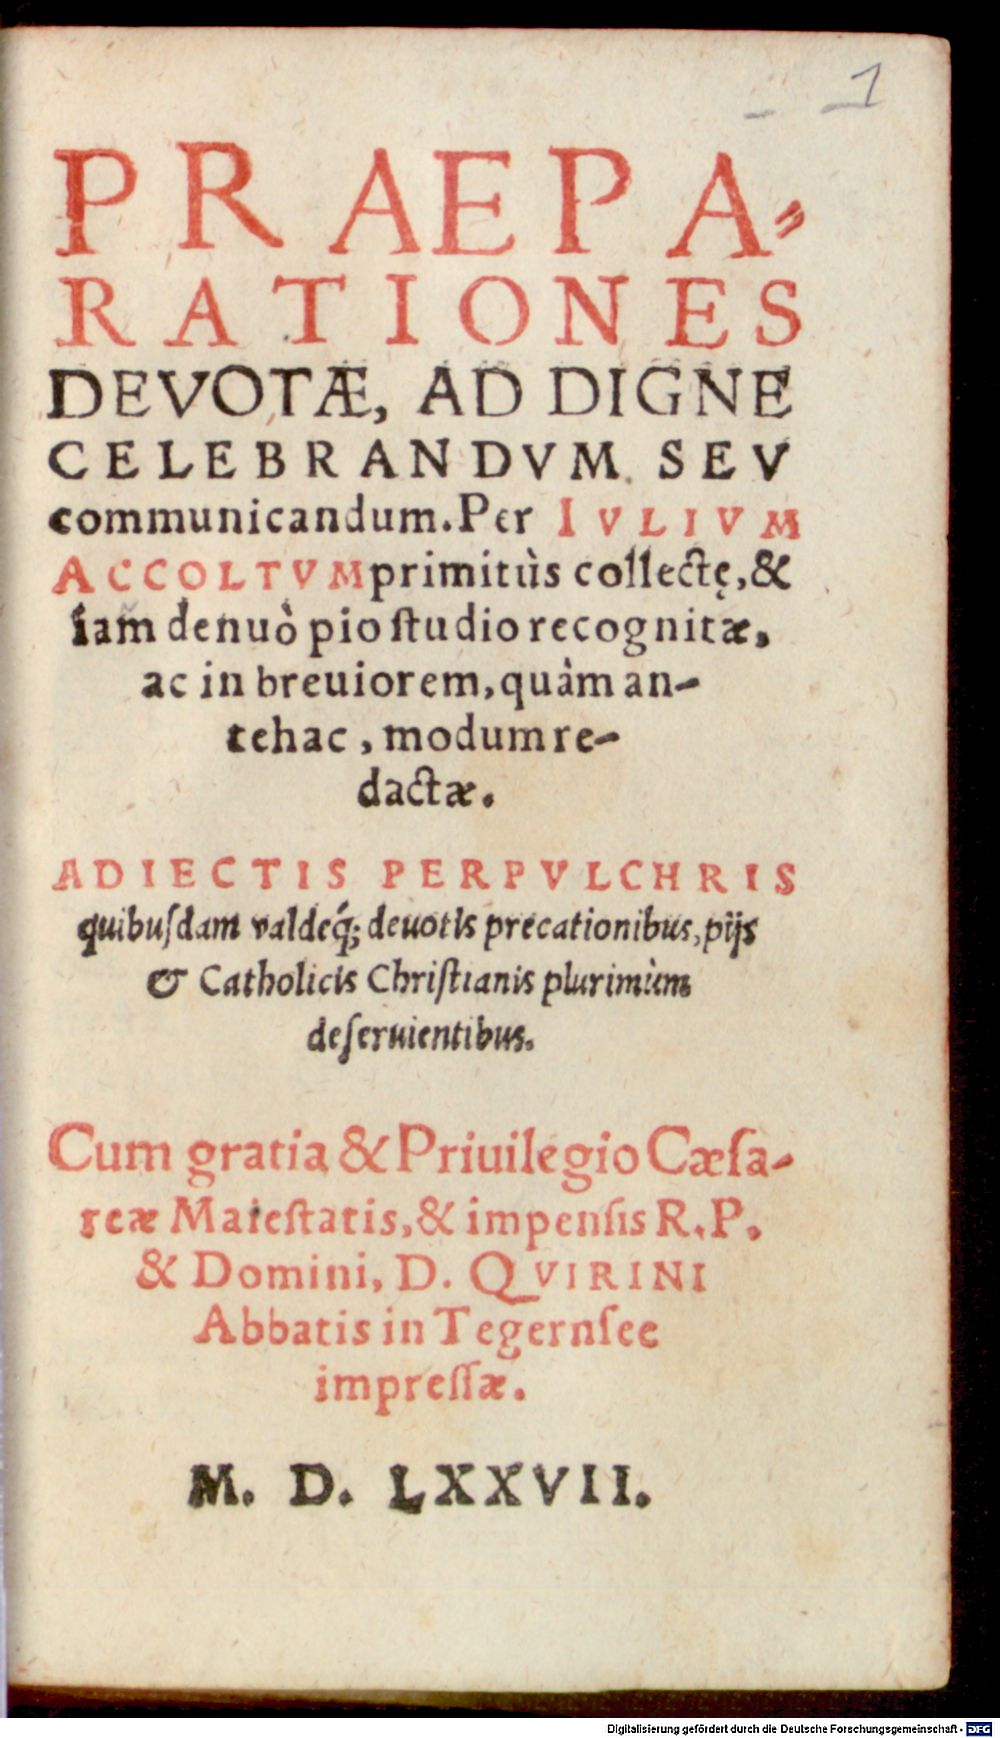 1
PRAEPA-
RATIONES
DEVOTÆ, AD DIGNE
CELEBRANDVM SEV
communicandum. Per IVLIVM
ACCOLTVM primitùs collectę, &
iam denuò pio studio recognitæ,
ac in breuiorem, quàm an-
tehac, modum re-
dactæ.
ADIECTIS PERPVLCHRIS
quibuſdam valdeq́; deuotis precationibus, pijs
& Catholicis Chriſtianis plurimùm
deſeruientibus.
Cum gratia & Priuilegio Cæſa-
reæ Maieſtatis, & impenſis R. P.
& Domini, D. QVIRINI
Abbatis in Tegernſee
impreſſæ.
M. D. LXXVII.
Digitalisierung gefördert durch die Deutsche Forschungsgemeinschaft - DFG